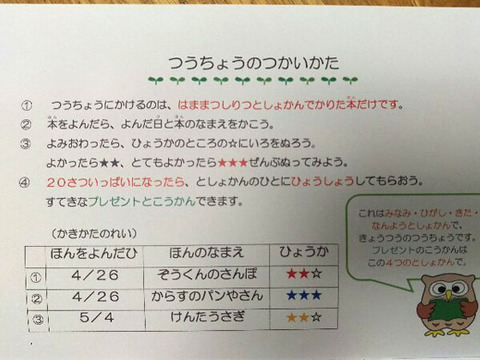 つうちょうのつかいかた
① つうちょうにかけるのは、はままつしりつとしょかんでかりた本だけです。
② 本をよんだら、よんだ日と本のなまえをかこう。
③ よみおわったら、ひょうかのところの☆にいろをぬろう。
よかったら★★、とてもよかったら★★★ぜんぶぬってみよう。
④ 20さついっぱいになったら、としょかんのひとにひょうしょうしてもらおう。
すてきなプレゼントとこうかんできます。
(かきかたのれい)
ほんをよんだひ ほんのなまえ ひょうか
① 4/26 ぞうくんのさんぽ ★★☆
② 4/26 からすのパンやさん ★★★
③ 5/4 けんたうさぎ ★★☆
これはみなみ・ひがし・きた・
なんようとしょかんで、
きょうつうのつうちょうです。
プレゼントのこうかんは
この4つのとしょかんで。